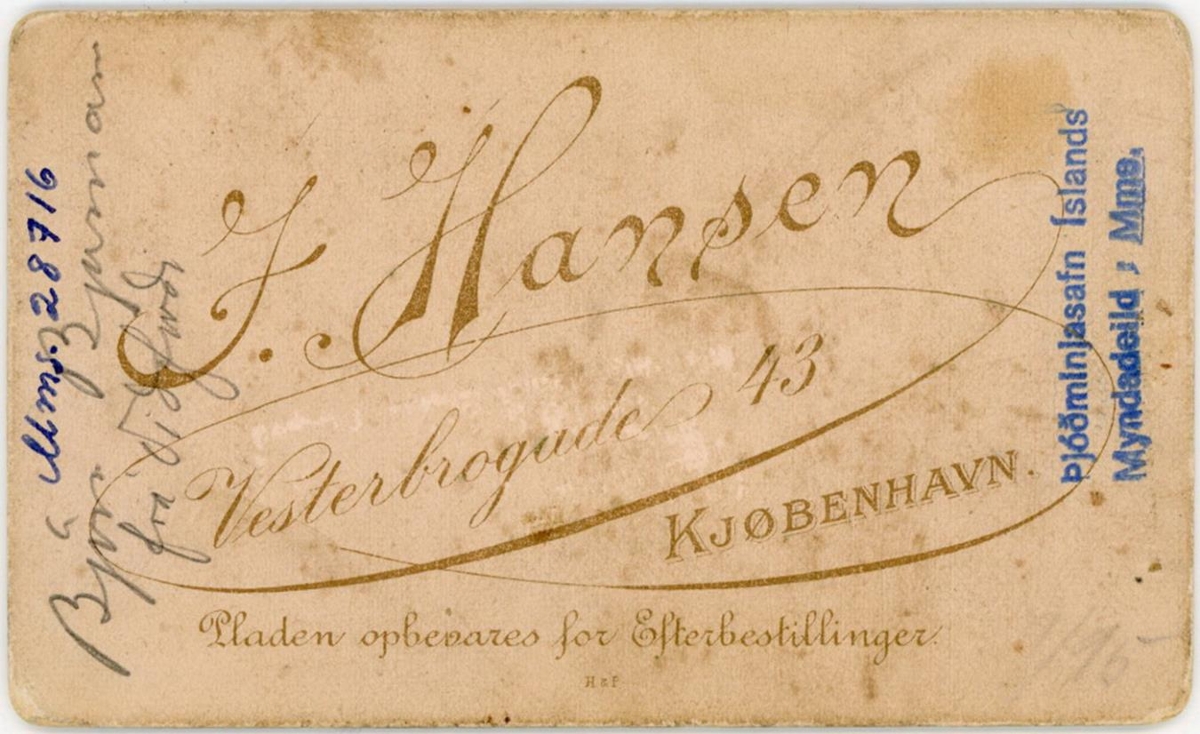 J. Hansen
Vesterbrogade 43
KJØBENHAVN.
Pladen opbevares for Efterbestillinger.
H & P
Mms. 28716
Björn Bjarnason
frá Viðfirði
Þjóðminjasafn Íslands
Myndadeild; Mms.